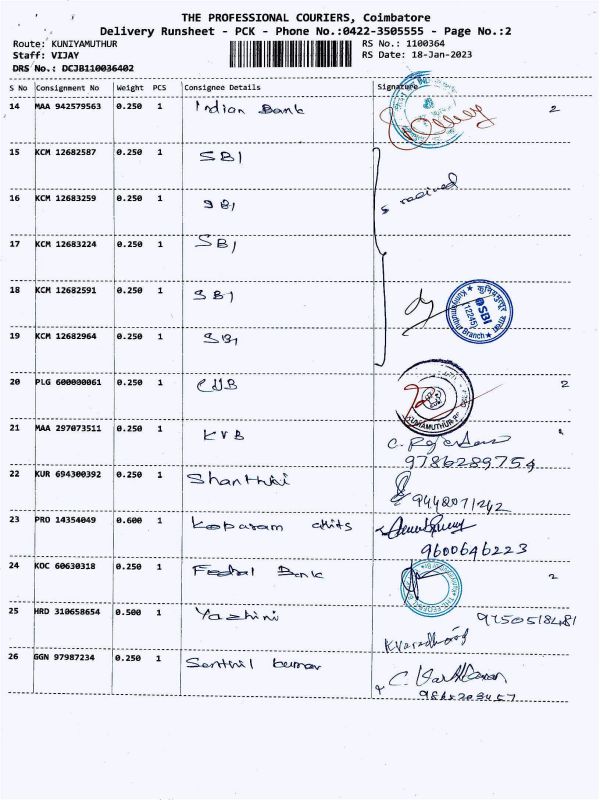 THE PROFESSIONAL COURIERS, Coimbatore
Delivery Runsheet - PCK - Phone No.:0422-3505555 - Page No.:2
Route: KUNIYAMUTHUR RS No.: 1100364
Staff: VIJAY RS Date: 18-Jan-2023
DRS No.: DCJB110036402
S No Consignment No Weight PCS Consignee Details Signature
14 MAA 942579563 0.250 1 Indian Bank 2
15 KCM 12682587 0.250 1 SBI
16 KCM 12683259 0.250 1 SBI 5 received
17 KCM 12683224 0.250 1 SBI
18 KCM 12682591 0.250 1 SBI
कुनियमुत्तूर शाखा
SBI
(12245)
Kuniyamuthur Branch
19 KCM 12682964 0.250 1 SBI
20 PLG 600000061 0.250 1 CUB 2
KUNIAMUTHUR
21 MAA 297073511 0.250 1 KVB
9786289754
22 KUR 694300392 0.250 1 Shanthi
9442071242
23 PRO 14354049 0.600 1 Koparam chits
9600646223
24 KOC 60630318 0.250 1 Fedral Bank 2
25 HRD 310658654 0.500 1 Yazhini
26 GGN 97987234 0.250 1 Senthil kumar